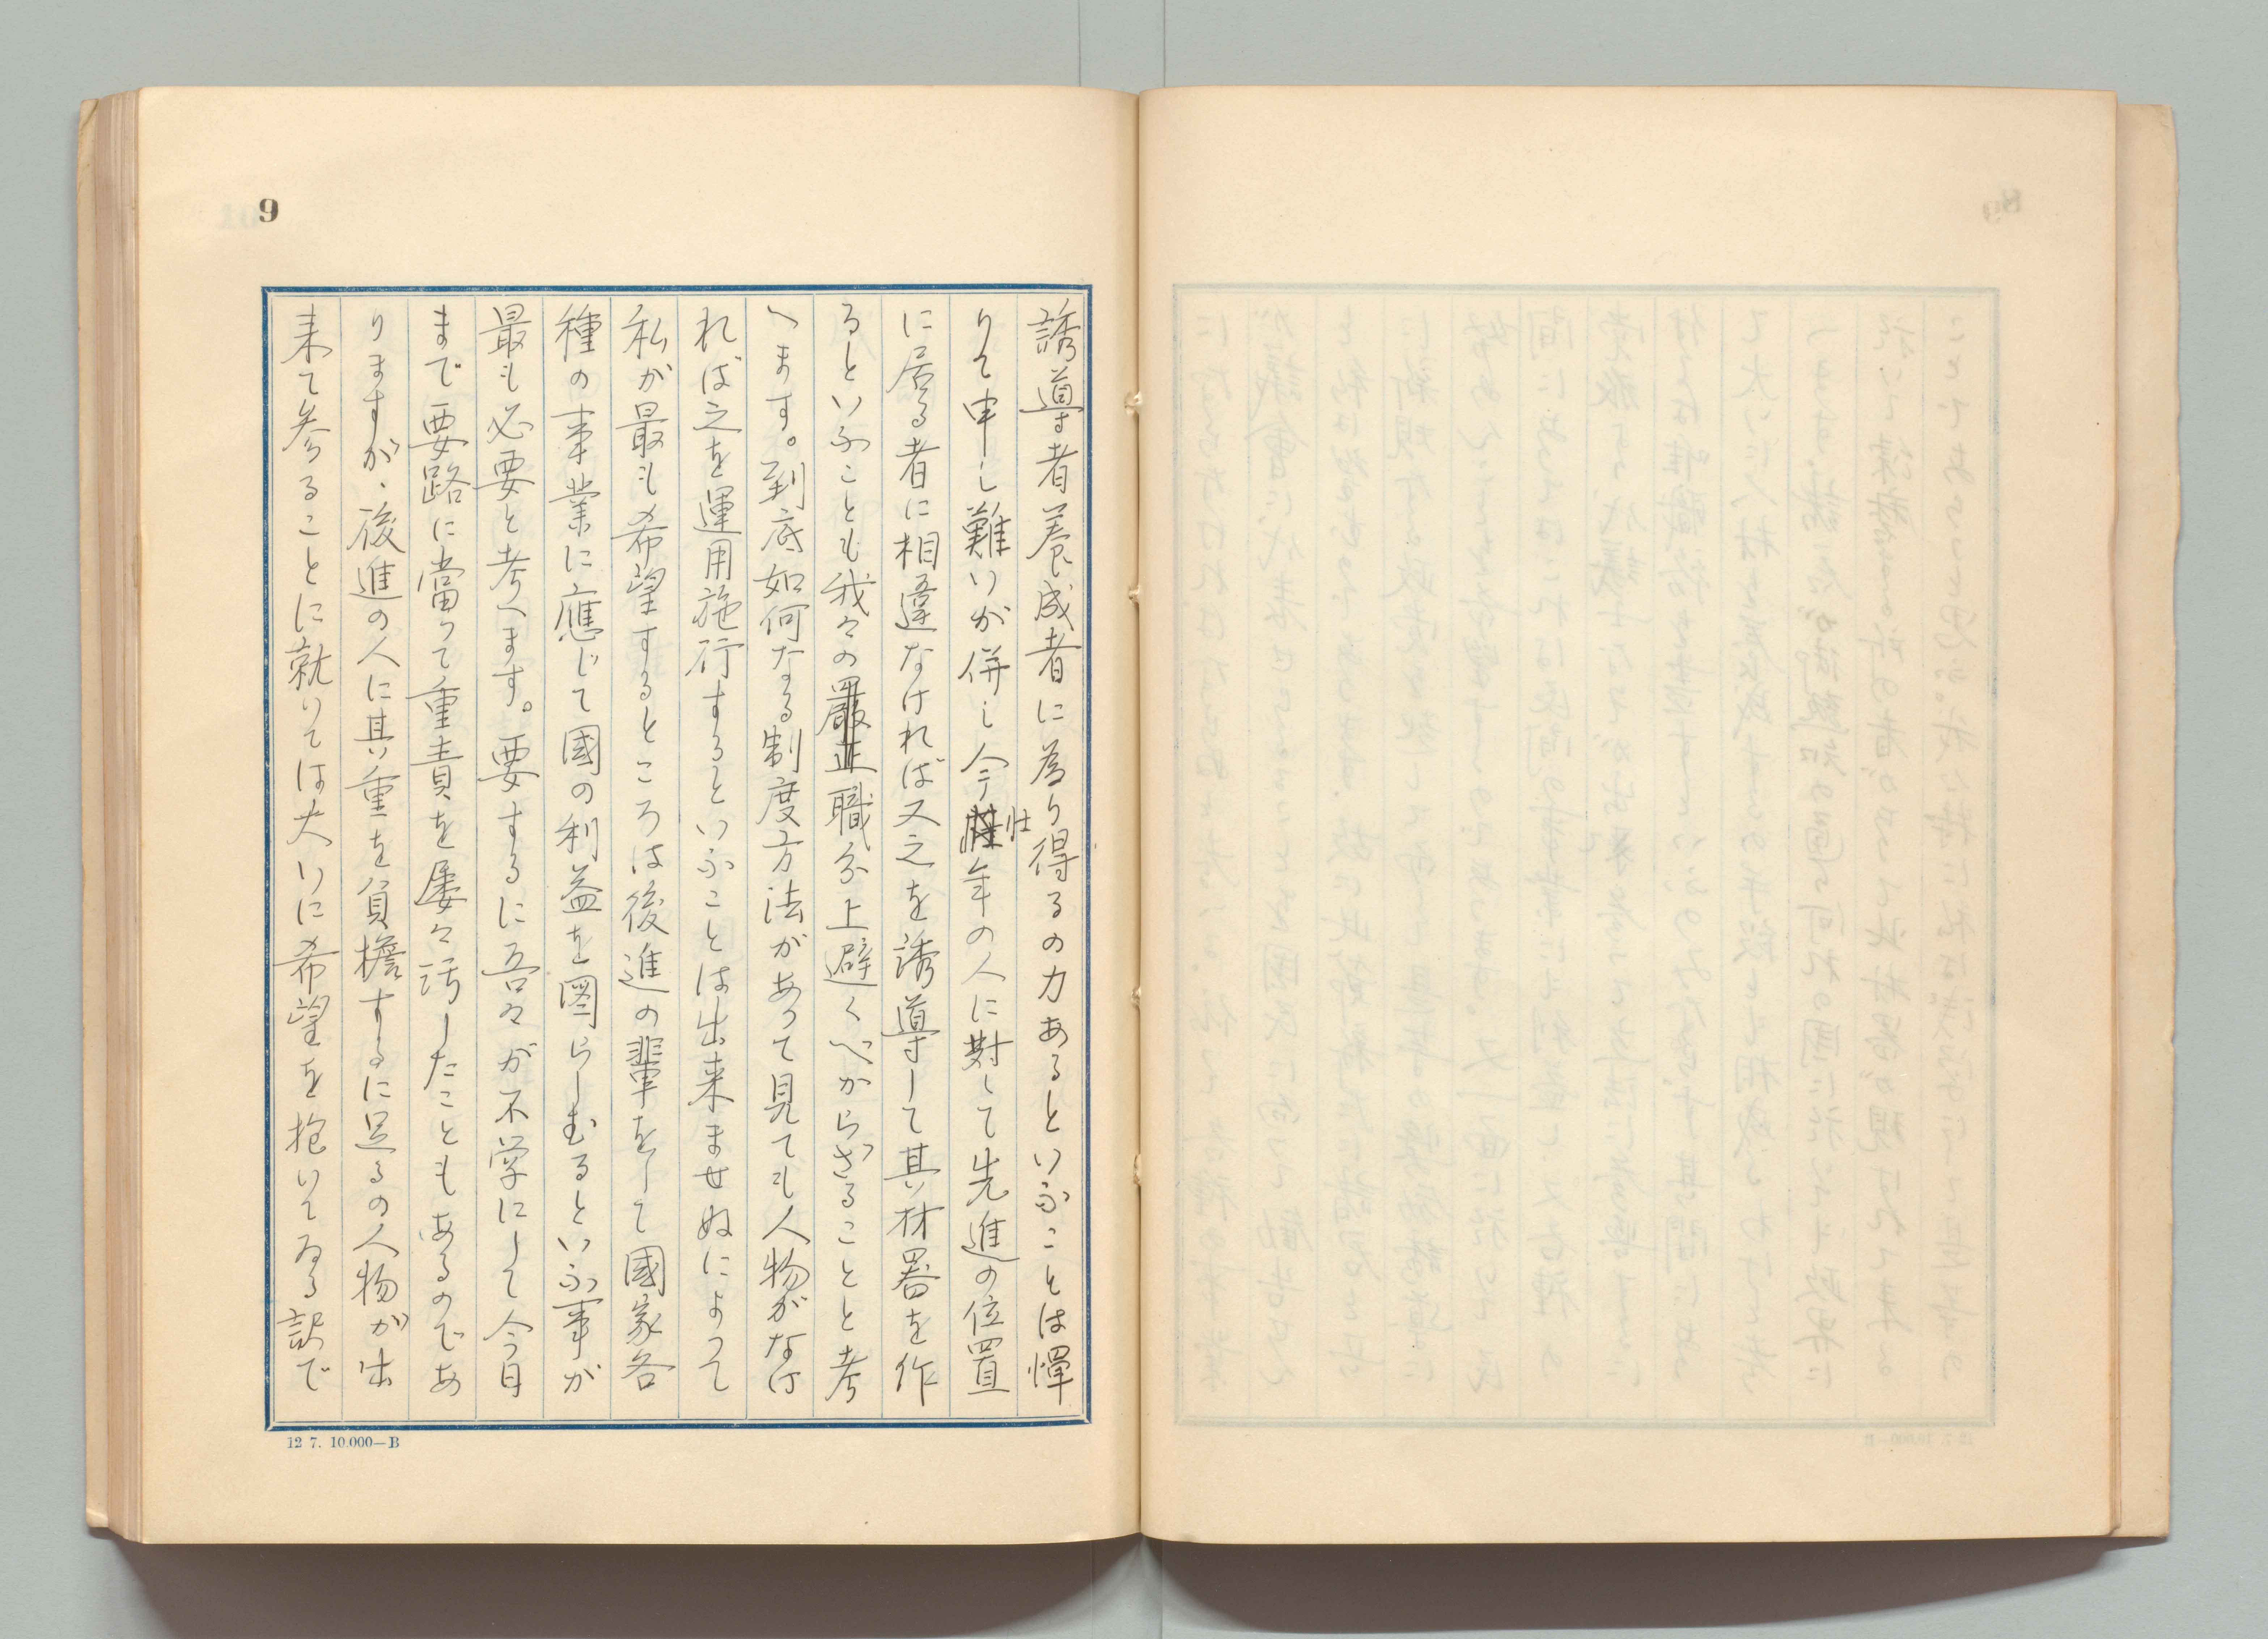 9
誘導者養成者に為り得るの力あるといふことは憚
りて申し難いが併し今壮年の人に對して先進の位置
に居る者に相違なければ又之を誘導して其材器を作
るといふことも我々の職分上避くべからざることと考
へます。到底如何なる制度方法があつて見ても人物がなけ
れば之を運用施行するといふことは出来ませぬによつて
私が最も希望するところは後進の輩をして國家各
種の事業に應じて國の利益を圖らしむるといふ事が
最も必要と考へます。要するに吾々が不学にして今日
まで要路に當つて重責を屡々汚したこともあるのであ
りますが、後進の人に其重を負擔するに足るの人物が出
来て参ることに就いては大いに希望を抱いてゐる訳で
12 7. 10.000—B